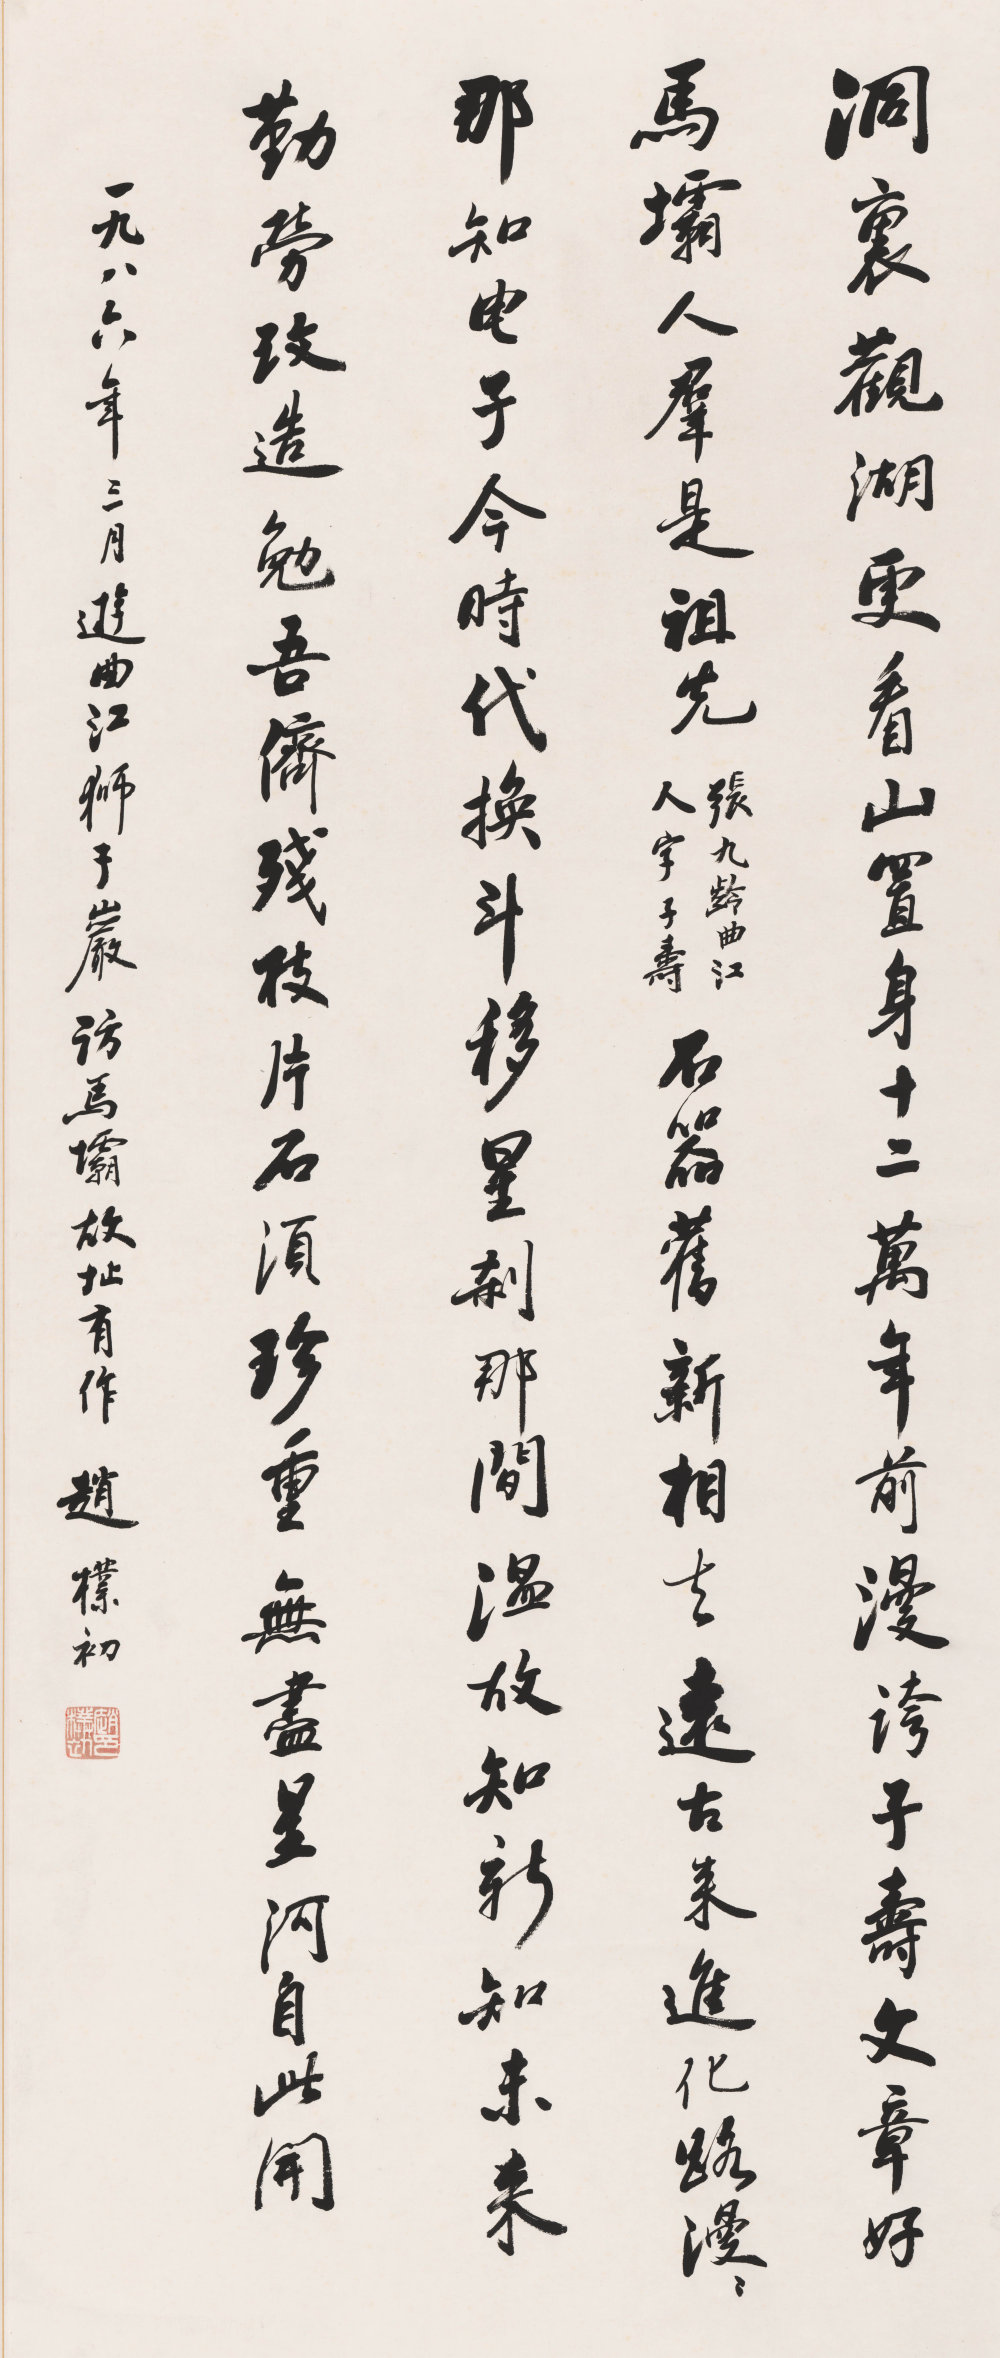 洞裏觀湖更看山置身十二萬年前漫誇子壽文章好
馬壩人羣是祖先
張九齡曲江
人字子壽
石器舊新相去遠古來進化路漫〻
那知电子今時代換斗移星剎那間温故知新知未来
勤勞改造勉吾儕殘枝片石須珍重無盡星河自此開
一九八六年三月遊曲江獅子巖访馬壩故址有作
趙樸初
趙樸初